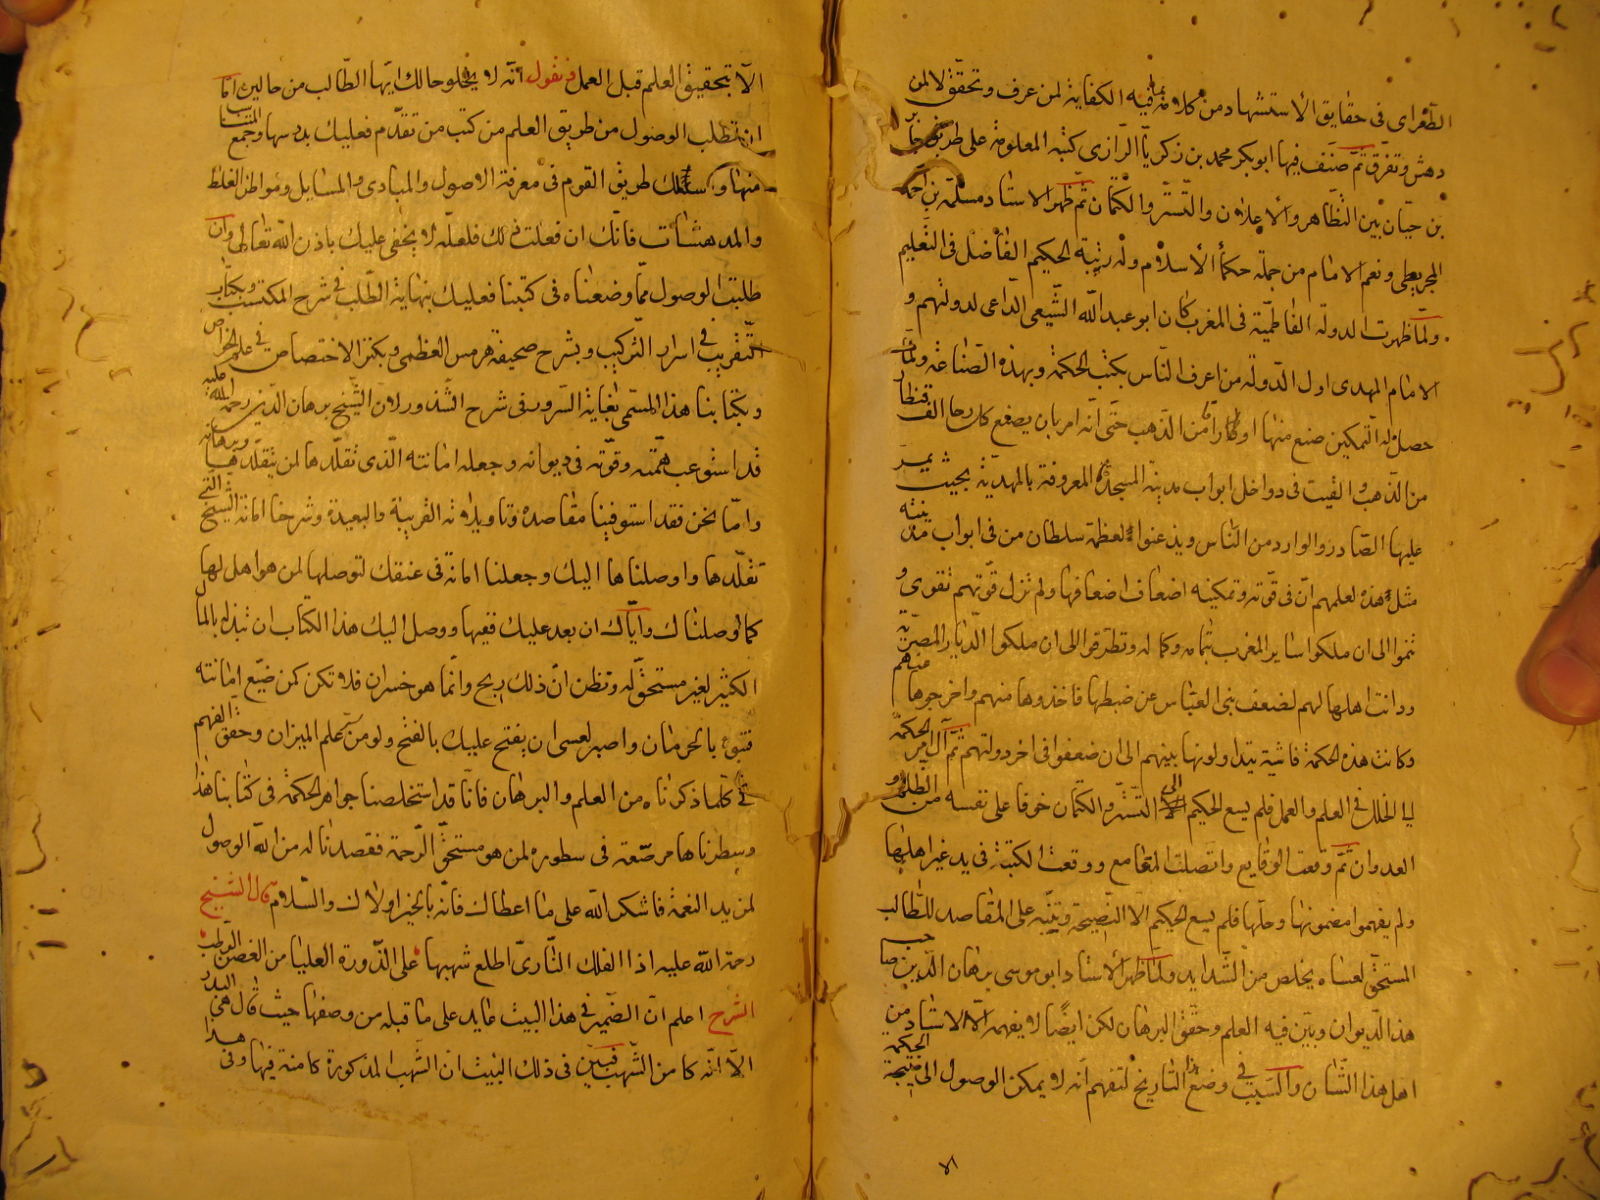 الطغراى فى حقايق الاستشهاد من كلامه فيه الكفاية لمن عرف وتحقق لا لمن
دهش وتفرق ثم صنف فيها ابوبكر محمد بن زكريا الرازى كتبه المعلومة على طريق جابر
بن حيان بين التظاهر والاعلان والتستر والكتمان ثم ظهر الاستاد مسلمة بن احمد
المجريطى ونعم الامام من جملة حكما الاسلام وله رتبة الحكيم الفاضل فى التعليم
ولما ظهرت الدولة الفاطمية فى المغرب كان ابو عبد الله الشيعى الداعى لدولتهم و
الامام المهدى اول الدولة من اعرف الناس بكتب الحكمة وبهذه الصناعة ولما
حصل له التمكين صنع منها من الذهب حتى انه امر بان الف قنطار
من الذهب والقيت فى دواخل ابواب مدينة المعروفة بالمهدية بحيث يمر
عليها الصادر والوارد من الناس ويذعنوا لعظمة سلطان من فى ابواب مدينته
مثل هذه لعلمهم ان فى قوته وتمكينه اضعاف اضعافها ولم تزل قوتهم تقوى و
تنموا الى ان ملكوا ساير المغرب بتمامه وكماله وتطرقوا الى ان ملكوا الديار المصرية
ودانت اهلها لهم لضعف بنى العباس عن ضبطها فاخذوها منهم واخرجوها منهم
وكانت هذه الحكمة فاشية يتداولونها بينهم الى ان ضعفوا فى اخر دولتهم ثم آل امر الحكمة
الى الخلل فى العلم والعمل فلم يسع الحكيم الا التستر والكتمان خوفا على نفسه من الظلم و
العدوان ثم وقعت الوقايع واتصلت المقامع ووقعت الكتب فى يد غير اهلها
ولم يفهموا مضمونها وحلها فلم يسع الحكيم الا النصيحة وتنبه على المقاصد للطالب
المستحق لعساه يخلص من الشدايد ولما ظهر الاستاد ابو موسى برهان الدين صاحب
هذا الديوان وبين فيه العلم وحقق البرهان لكن ايضا لا يفهمه الا الاستاد من
اهل هذا الشان والسبب فى وضع هذا التاريخ لتفهم انه لا يمكن الوصول الى نتيجة الحكمة
الا
الا بتحقيق العلم قبل العمل فنقول انه لا يخلو حالك ايها الطالب من حالين اما
ان تطلب الوصول من طريق العلم من كتب من تقدم فعليك بدرسها وجمع
منها واسلك طريق القوم فى معرفة الاصول والمبادى والمسايل ومواطن الغلط
والمدهشات فانك ان فعلت ذلك فلعله لا يخفى عليك باذن الله تعالى وان
طلبت الوصول مما وضعناه فى كتبنا فعليك بنهاية الطلب فى شرح المكتسب وبكتاب
التقريب فى اسرار التركيب وبشرح صحيفة هرمس العظمى وبكنز الاختصاص فى علم الخواص
وبكتابنا هذا المسمى بغاية السرور فى شرح الشذور لان الشيخ برهان الدين رحمة الله عليه
قد استوعب همته وقوته فى ديوانه وجعله امانته الذى تقلدها لمن يتقلدها
واما نحن فقد استوفينا مقاصده وتاويلاته القريبة والبعيدة وشرحنا امانة الشيخ التى
تقلدها واوصلناها اليك وجعلنا امانة فى عنقك لتوصلها لمن هو اهل لها
كما اوصلناك واياك ان بعد عليك فهمها ووصل اليك هذا الكتاب ان تبذله بالمال
الكثير لغير مستحق له وتظن ان ذلك ربح وانما هو خسران فلا تكن كمن ضيع امانته
فتبوء بالحرمان واصبر لعسى ان يفتح عليك بالفتح ولو من علم الميزان وحقق الفهم
فى كلما ذكرناه من العلم والبرهان فانا قد استخلصنا جواهر الحكمة فى كتابنا هذا
وسطرناها مرصعة فى سطوره لمن هو مستحق الرحمة فقصدنا له من الله الوصول
لمزيد النعمة فاشكر الله على ما اعطاك فانه بالخير اولاك والسلام قال الشيخ
رحمة الله عليه اذا الفلك النارى اطلع شهبها على الذورة العليا من الغصن الرطب
الشرح اعلم ان الضمير فى هذا البيت عايد على ما قبله من وصفها حيث قال هى البدر
الا انه كامن الشهب فبين فى ذلك البيت ان الشهب المذكورة كامنة فيها وفى هذا